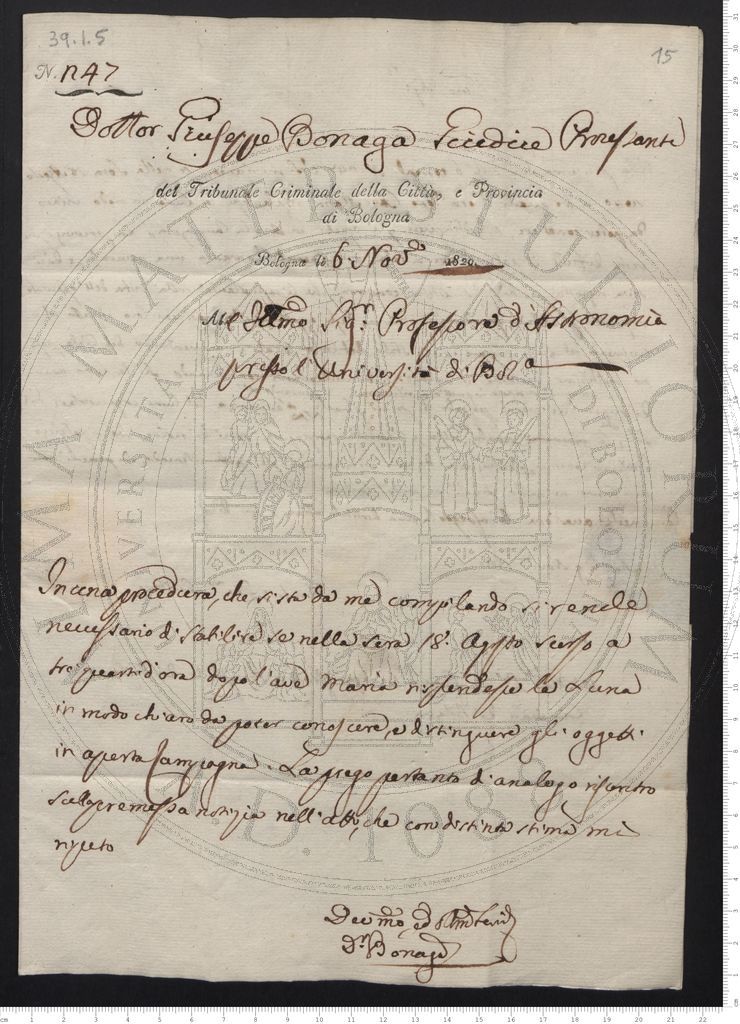 39.1.5
15
N. n 47
Dottor Giuseppe Bonaga Giudice Processante
del Tribunale Criminale della Città, e Provincia
di Bologna
Bologna li 6 Nov.e 1820.
All'Illmo Sig.r Professore d'Astronomia
presso l'Università di Bol.a
In una procedura, che si sta da me compilando si rende
necessario di stabilire se nella sera 18. Agosto scorso a
tre quarti d'ora dopo l'ave Maria risplendesse la Luna
in modo chiaro da poter conoscere, e distinguere gli oggetti
in aperta Campagna. La prego pertanto di analogo riscontro
sulla premessa notizia nell'atto, che con distinta stima mi
ripeto
Devmo, ed
D.r Bonaga
ALMA MATER STUDIORUM
UNIVERSITÀ DI BOLOGNA
A.D. 1088